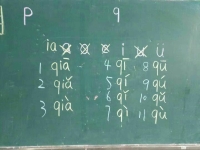 p q
ia i ü
1 qiā 4 qī 8 qū
2 qiǎ 5 qí 9 qú
3 qià 6 qǐ 10 qǔ
7 qì 11 qù